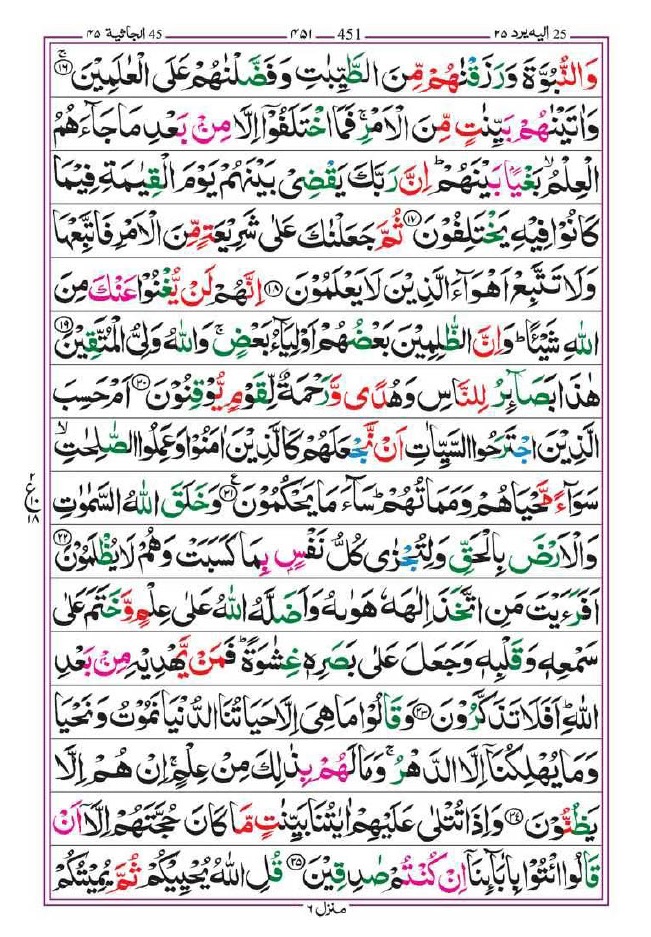 25 اليه يرد ٢٥ — 451 — ٤٥١ — 45 الجاثية ٤٥
وَالنُّبُوَّةَ وَرَزَقْنٰهُمْ مِّنَ الطَّيِّبٰتِ وَفَضَّلْنٰهُمْ عَلَى الْعٰلَمِيْنَ ۚ ۝١٦
وَاٰتَيْنٰهُمْ بَيِّنٰتٍ مِّنَ الْاَمْرِ ۚ فَمَا اخْتَلَفُوْۤا اِلَّا مِنْۢ بَعْدِ مَا جَآءَهُمُ
الْعِلْمُ ۙ بَغْيًۢا بَيْنَهُمْ ؕ اِنَّ رَبَّكَ يَقْضِيْ بَيْنَهُمْ يَوْمَ الْقِيٰمَةِ فِيْمَا
كَانُوْا فِيْهِ يَخْتَلِفُوْنَ ۝١٧ ثُمَّ جَعَلْنٰكَ عَلٰى شَرِيْعَةٍ مِّنَ الْاَمْرِ فَاتَّبِعْهَا
وَلَا تَتَّبِعْ اَهْوَآءَ الَّذِيْنَ لَا يَعْلَمُوْنَ ۝١٨ اِنَّهُمْ لَنْ يُّغْنُوْا عَنْكَ مِنَ
اللّٰهِ شَيْـًٔا ؕ وَاِنَّ الظّٰلِمِيْنَ بَعْضُهُمْ اَوْلِيَآءُ بَعْضٍ ۚ وَاللّٰهُ وَلِيُّ الْمُتَّقِيْنَ ۝١٩
هٰذَا بَصَآئِرُ لِلنَّاسِ وَهُدًى وَّرَحْمَةٌ لِّقَوْمٍ يُّوْقِنُوْنَ ۝٢٠ اَمْ حَسِبَ
الَّذِيْنَ اجْتَرَحُوا السَّيِّاٰتِ اَنْ نَّجْعَلَهُمْ كَالَّذِيْنَ اٰمَنُوْا وَعَمِلُوا الصّٰلِحٰتِ ۙ
سَوَآءً مَّحْيَاهُمْ وَمَمَاتُهُمْ ؕ سَآءَ مَا يَحْكُمُوْنَ ۝٢١ ع وَخَلَقَ اللّٰهُ السَّمٰوٰتِ
٢ ع ١٠ ١٨
وَالْاَرْضَ بِالْحَقِّ وَلِتُجْزٰى كُلُّ نَفْسٍۢ بِمَا كَسَبَتْ وَهُمْ لَا يُظْلَمُوْنَ ۝٢٢
اَفَرَءَيْتَ مَنِ اتَّخَذَ اِلٰهَهٗ هَوٰىهُ وَاَضَلَّهُ اللّٰهُ عَلٰى عِلْمٍ وَّخَتَمَ عَلٰى
سَمْعِهٖ وَقَلْبِهٖ وَجَعَلَ عَلٰى بَصَرِهٖ غِشٰوَةً ؕ فَمَنْ يَّهْدِيْهِ مِنْۢ بَعْدِ
اللّٰهِ ؕ اَفَلَا تَذَكَّرُوْنَ ۝٢٣ وَقَالُوْا مَا هِيَ اِلَّا حَيَاتُنَا الدُّنْيَا نَمُوْتُ وَنَحْيَا
وَمَا يُهْلِكُنَاۤ اِلَّا الدَّهْرُ ۚ وَمَا لَهُمْ بِذٰلِكَ مِنْ عِلْمٍ ۚ اِنْ هُمْ اِلَّا
يَظُنُّوْنَ ۝٢٤ وَاِذَا تُتْلٰى عَلَيْهِمْ اٰيٰتُنَا بَيِّنٰتٍ مَّا كَانَ حُجَّتَهُمْ اِلَّاۤ اَنْ
قَالُوا ائْتُوْا بِاٰبَآئِنَاۤ اِنْ كُنْتُمْ صٰدِقِيْنَ ۝٢٥ قُلِ اللّٰهُ يُحْيِيْكُمْ ثُمَّ يُمِيْتُكُمْ
منزل ٦